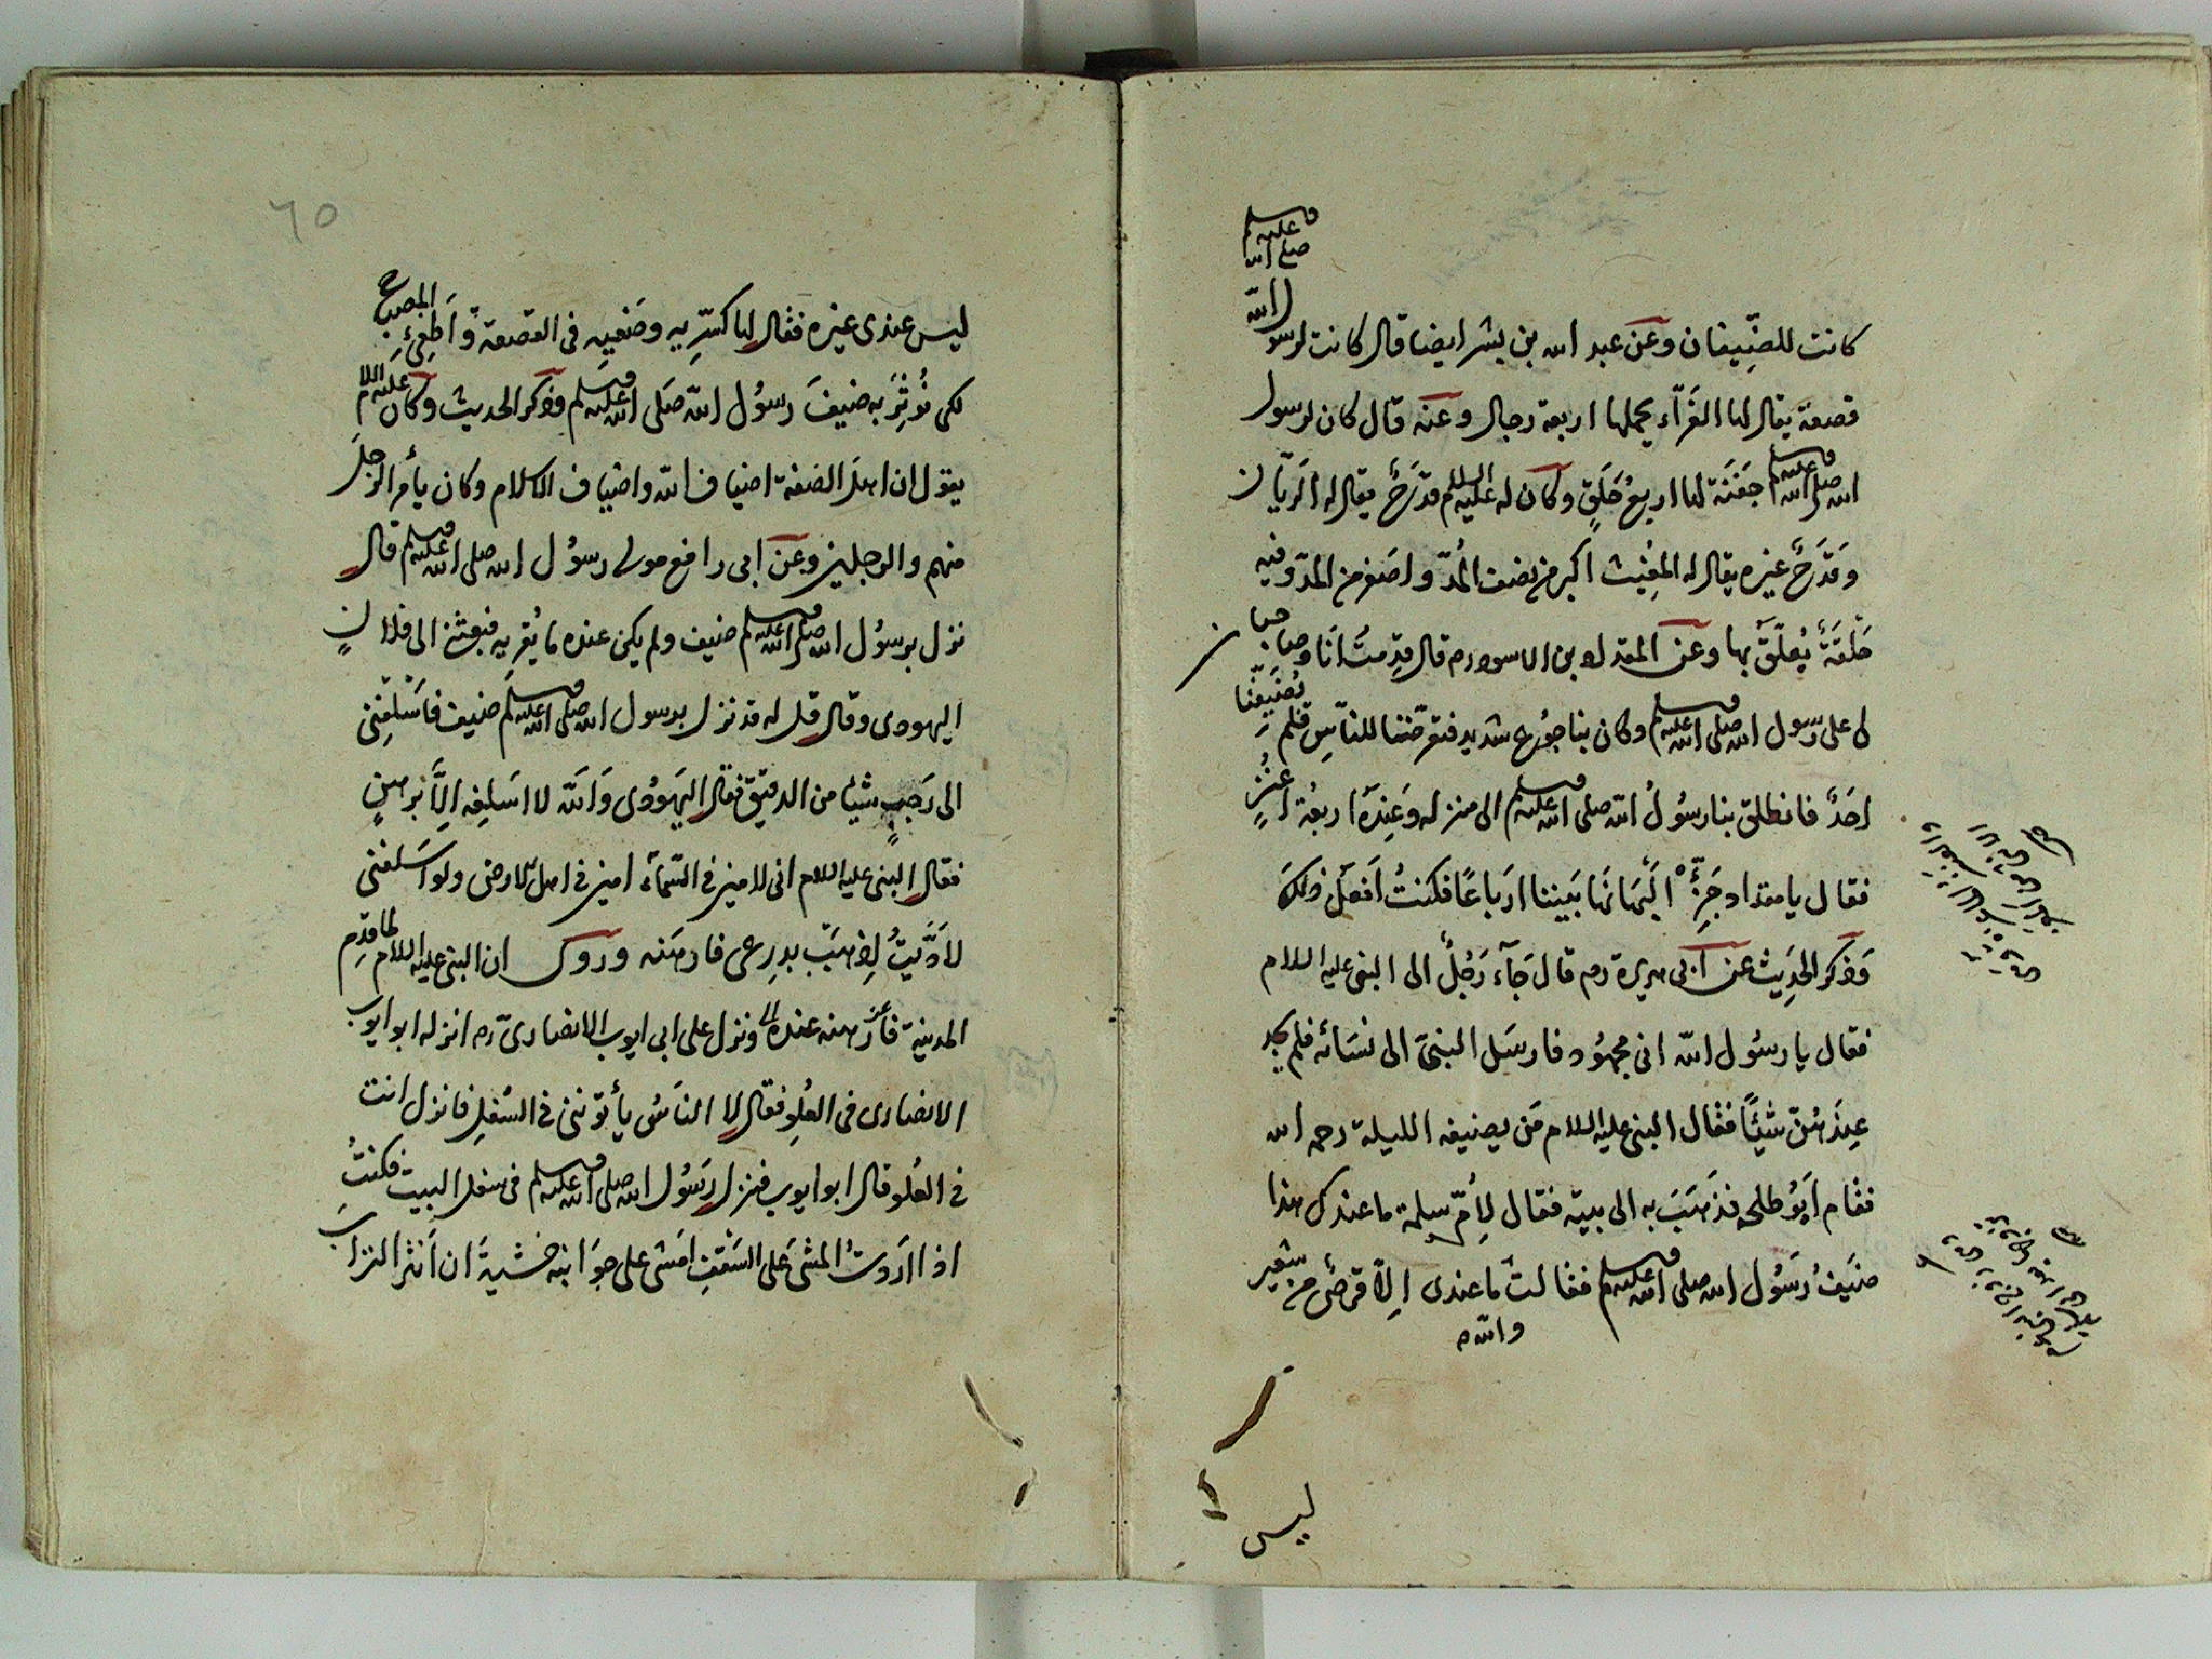 كانت للضِّيفان وعن عبد الله بن بشر ايضا قال كانت لرسول الله صلى الله عليه وسلم
قصعة يقال لها الغَرّآء يحملها اربعة رجال وعنه قال كان لرسول
الله صلى الله عليه وسلم جَفنَة لها اربعُ حَلَقٍ وكان له عليه السلام قدَحٌ يقال له الرَيّان
وقَدَحٌ غيره يقال له المغِيث اكبر من نصف المُدّ واصغر من المدّ وفيه
حَلْقَةٌ يُعلَّقُ بها وعن المقداد بن الاسود رم قال قدِمتُ اَنَا وصاحبان
لى على رسول الله صلى الله عليه وسلم وكان بنا جُوع شديد فتعرّضنا للناس فلم يُضَيِّفْنا
احَدٌ فانطلق بنا رسُولُ الله صلى الله عليه وسلم الى منزله وَعِندَهُ اربعُة اَعْنُزٍ
فقال يا مقداد جَزِّئْ اَلْبَانَهَا بَيننا ارَباعًا فكنتُ اَفعَل ذلكَ
وَذكر الحَدِيث عن ابى هريرة رم قال جَآء رَجُلٌ الى النبى عليه السلام
فقال يا رسُول الله انى مجهُود فارسَل النبىّ الى نسَائه فلم يجد
عِندَهُنّ شَيئًا فقال النبى عليه السلام مَن يضيفه الليلة رحمه الله
فقام اَبُو طلحه فذَهَبَ به الى بيته فقال لِأمّ سلمة ما عندك هذا
ضَيفُ رَسُول الله صلى الله عليه وسلم فقالت ما عندى اِلاّ قرصٌ من شعير
والله
ليس
٦٥
ليس عندى غيره فقال لها كسِّرِيه وضَعيه فى القصعة وَاَطِفِئ المصباح
لكى نُوثِرَ به ضيفَ رسوُل الله صَلى الله عليه وسلم وذكر الحديث وكان عليه السلام
يقول ان اهلَ الصفة اضياف الله واضياف الاسلام وكان يأمر الرجلَ
منهم والرجلين وعن ابى رافع مولى رسوُل الله صلى الله عليه وسلم قال
نزل برسوُل الله صلى الله عليه وسلم ضيف ولم يكن عنده ما يُقريه فبعثنى الى فلان
اليهودى وقال قل له قد نزل برسول الله صلى الله عليه وسلم ضيف فاَسْلِفْنى
الى رَجبٍ شيئا من الدقيق فقال اليَهوُدى وَاَلله لا اسَلِفِه اِلّا برهن
فقال النبى عليه السلام انى لامين فى السّمآء امين فى اهل الارض ولو اسَلفنى
لاَدَّيتُ اِذهبَ بدرعى فارهَنه وروى ان النبى عليه السلام لما قدِم
المدينة فأرهنه عنده ونزل على ابى ايوب الانصارىّ رم انزله ابو ايوب
الانصارى فى العُلِو فقال لا الناسُ يأتوننى فى السُفلِ فانزل انت
فى العُلو قال ابو ايوب فنزل رسوُل الله صلى الله عليه وسلم فى سفل البيت فكنتُ
اذا اردتُ المشى عَلى السَقفِ امَشى على جوانبه خشيةَ ان اَنثر التراب